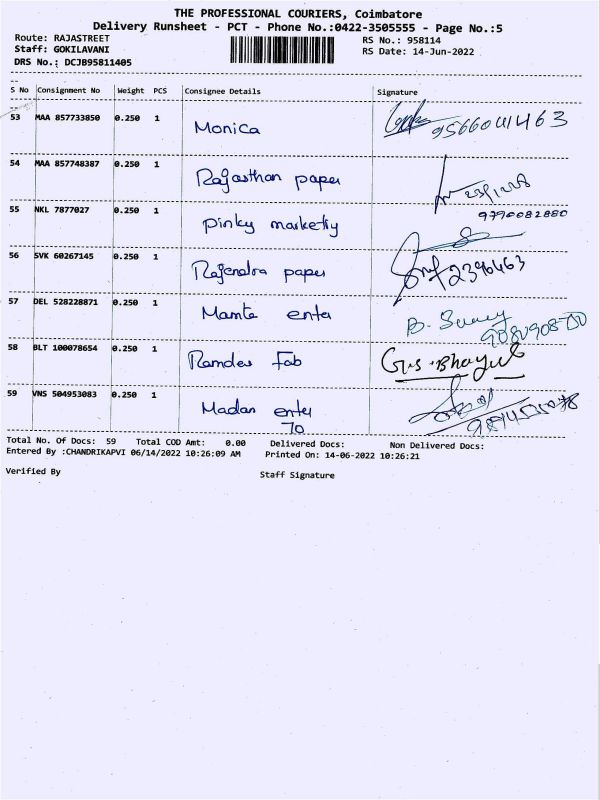 THE PROFESSIONAL COURIERS, Coimbatore
Delivery Runsheet - PCT - Phone No.:0422-3505555 - Page No.:5
Route: RAJASTREET RS No.: 958114
Staff: GOKILAVANI RS Date: 14-Jun-2022
DRS No.: DCJB95811405
S No Consignment No Weight PCS Consignee Details Signature
53 MAA 857733850 0.250 1 Monica
54 MAA 857748387 0.250 1 Rajasthan paper
9790082880
55 NKL 7877027 0.250 1 Pinky marketiy
56 SVK 60267145 0.250 1 Rajendra paper
57 DEL 528228871 0.250 1 Mamta enter
58 BLT 100078654 0.250 1 Ramdev Fab
59 VNS 504953083 0.250 1 Madan enter
70
Total No. Of Docs: 59 Total COD Amt: 0.00 Delivered Docs: Non Delivered Docs:
Entered By :CHANDRIKAPVI 06/14/2022 10:26:09 AM Printed On: 14-06-2022 10:26:21
Verified By Staff Signature